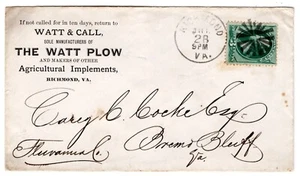 If not called for in ten days, return to
WATT & CALL,
SOLE MANUFACTURERS OF
THE WATT PLOW
AND MAKERS OF OTHER
Agricultural Implements,
RICHMOND, VA.
RICHMOND
28
5PM
VA.
Carey C. Cocke Esq.
Bremo Bluff
Fluvanna Co.
Va.